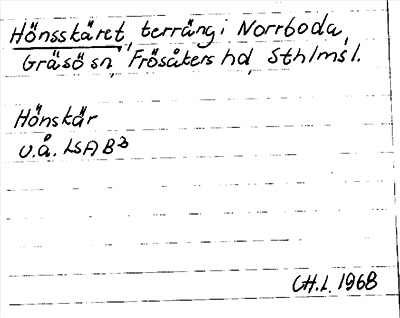 Hönsskäret, terräng i Norrboda,
Gräsö sn, Frösåkers hd, Sthlms l.
Hönskär
u.å. LSA B²
CH.L. 1968